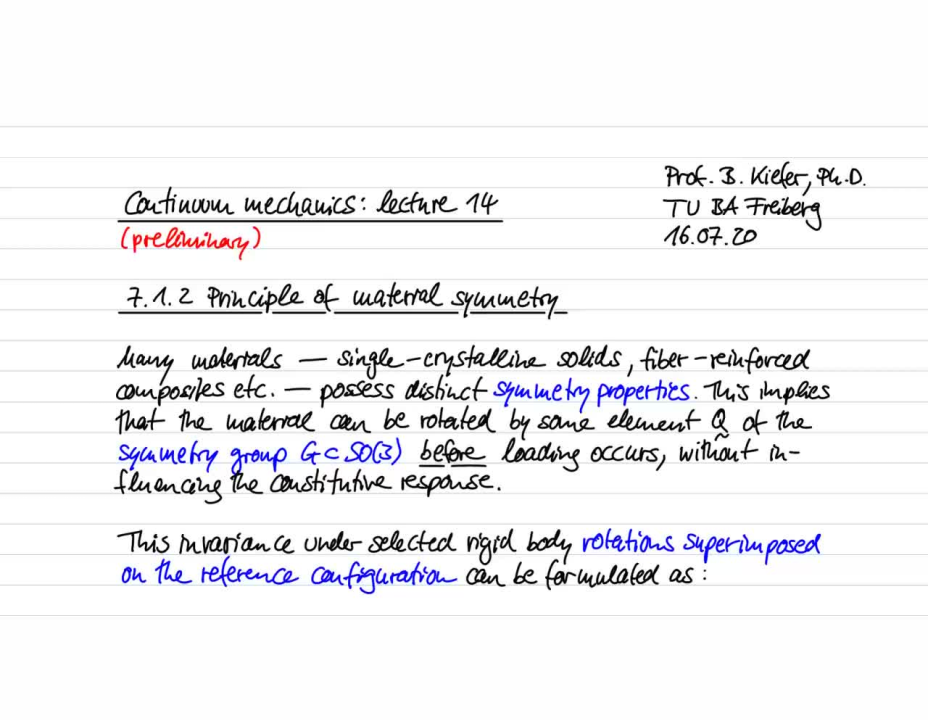 Continuum mechanics: lecture 14
(preliminary)
Prof. B. Kiefer, Ph.D.
TU BA Freiberg
16.07.20
7.1.2 Principle of material symmetry
Many materials — single-crystalline solids, fiber-reinforced
composites etc. — possess distinct symmetry properties. This implies
that the material can be rotated by some element Q̰ of the
symmetry group G⊂SO(3) before loading occurs, without in-
fluencing the constitutive response.
This invariance under selected rigid body rotations superimposed
on the reference configuration can be formulated as: